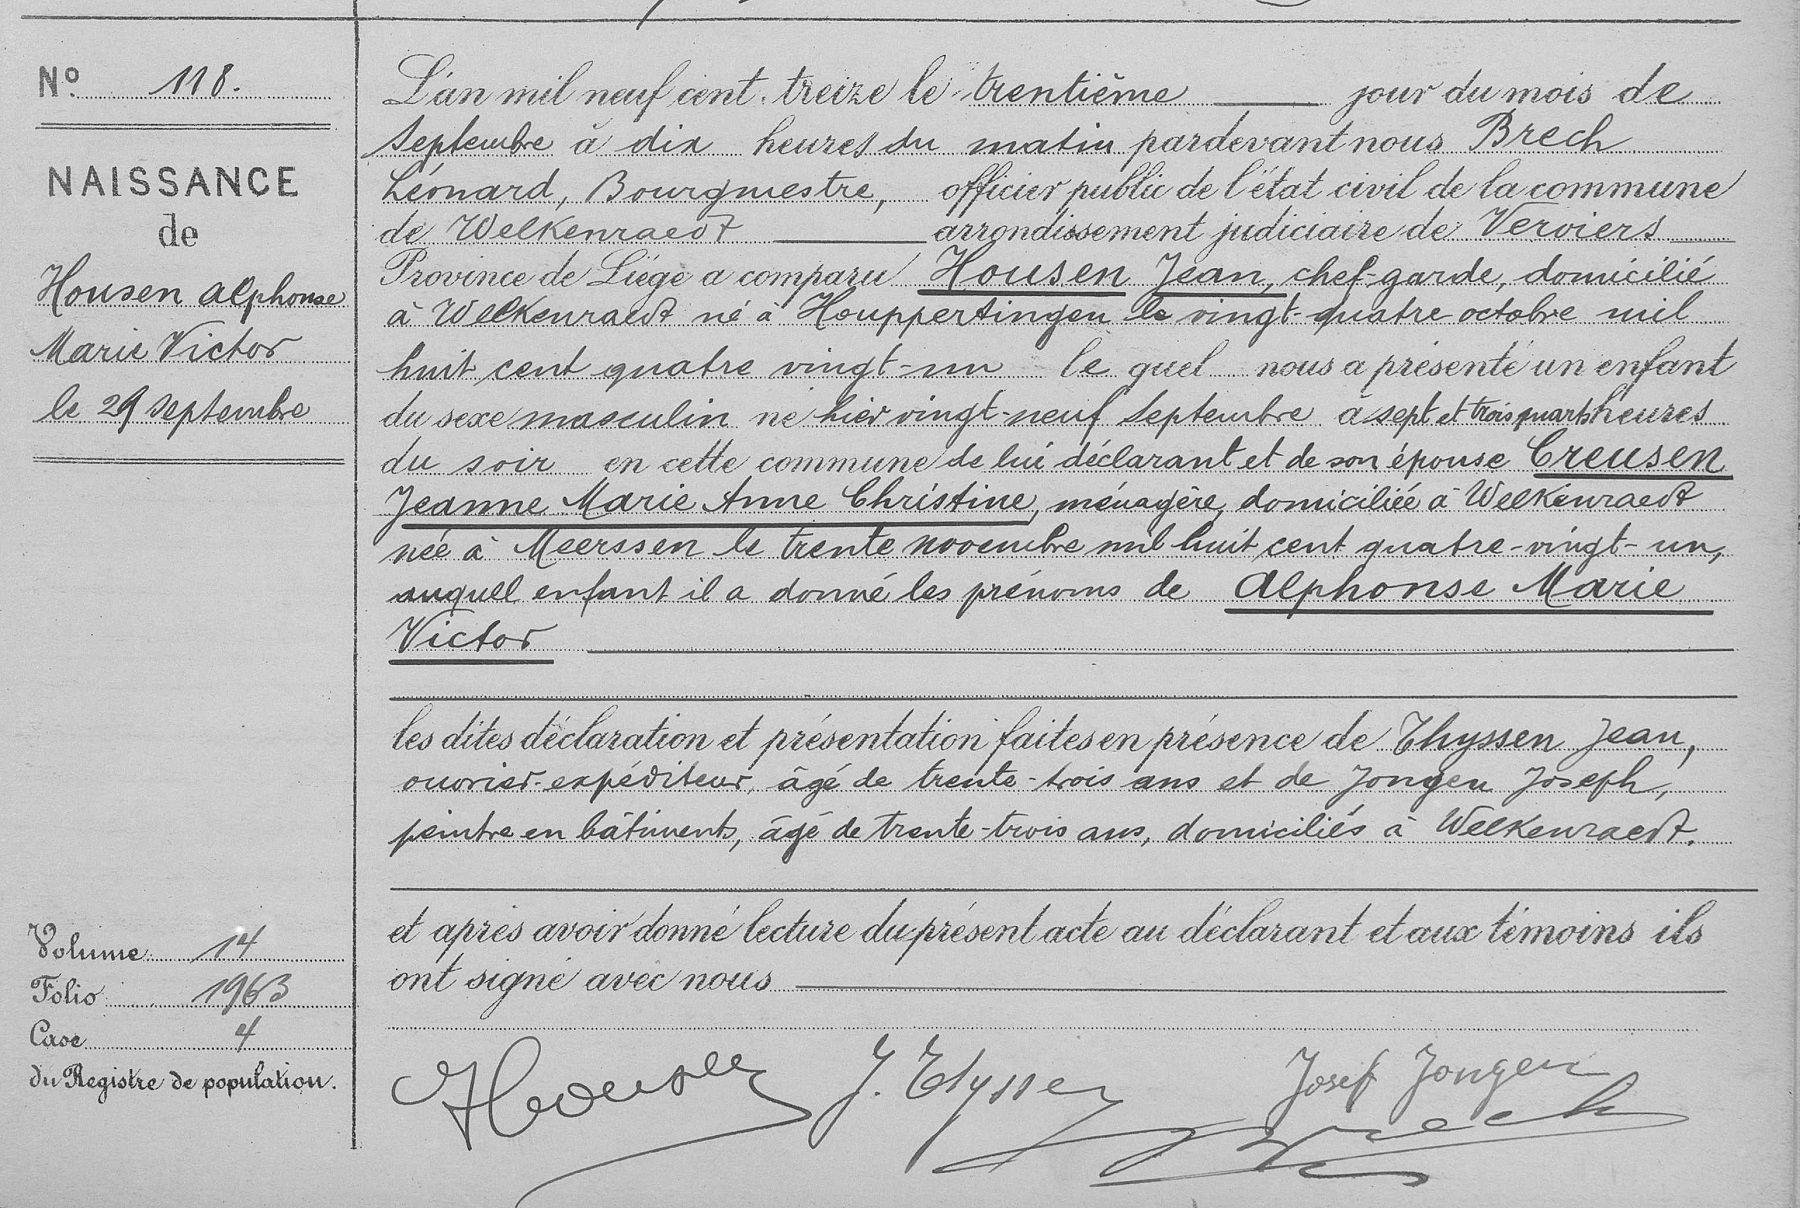 No. 118.
NAISSANCE
de
Housen Alphonse
Marie Victor
le 29 septembre
L'an mil neuf cent treize le trentième jour du mois de
septembre à dix heures du matin pardevant nous Brech
Léonard, Bourgmestre, officier public de l'état civil de la commune
de Welkenraedt arrondissement judiciaire de Verviers
Province de Liége a comparu Housen Jean, chef-garde, domicilié
à Welkenraedt né à Houppertingen le vingt-quatre octobre mil
huit cent quatre vingt-un le quel nous a présenté un enfant
du sexe masculin né hier vingt-neuf septembre à sept et trois quarts heures
du soir en cette commune de lui déclarant et de son épouse Creusen
Jeanne Marie Anne Christine, ménagère, domiciliée à Welkenraedt
née à Meerssen le trente novembre mil huit cent quatre-vingt-un,
auquel enfant il a donné les prénoms de Alphonse Marie
Victor
les dites déclaration et présentation faites en présence de Thyssen Jean,
ouvrier-expéditeur, âgé de trente-trois ans et de Jongen Joseph,
peintre en bâtiments, âgé de trente-trois ans, domiciliés à Welkenraedt.
et après avoir donné lecture du présent acte au déclarant et aux témoins ils
ont signé avec nous
Volume 14
Folio 1963
Case 4
du Registre de population.
Housen J. Thyssen Josef Jongen
Brech